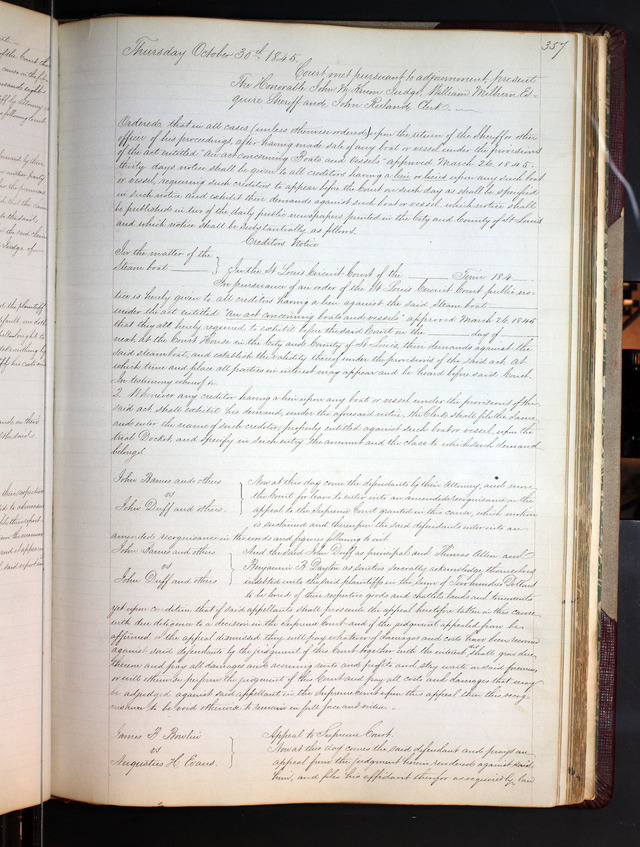 357
Thursday October 30th 1845
Court met pursuant to adjournment, present
The Honorable John M. Krum Judge, William Milburn Es-
quire Sheriff and John Ruland Clerk
Ordered, that in all cases (unless otherwise ordered) upon the return of the Sheriff or other
officer of his proceedings, after having made sale of any boat or vessel under the provisions
of the act entitled "An act concerning Boats and Vessels" approved March 26, 1845-
thirty days notice shall be given to all creditors having a lien or liens upon any such boat
or vessel, requiring such creditors to appear before the Court on such day as shall be specified
in such notice and exhibit their demands against such boat or vessel which notice shall
be published in two of the daily public newspapers printed in the City and County of St Louis
and which notice shall be substantially as follows.
Creditors Notice
In the matter of the
Steam boat } In the St Louis Circuit Court of the Term 184
In pursuance of an order of the St Louis Circuit Court, public no-
tice is hereby given to all creditors having a lien against the said Steam boat
under the act entitled "An act concerning boats and vessels" approved March 26, 1845
that they all hereby required to exhibit before the said Court on the day of
next, at the Court House in the City and County of St Louis, their demands against the
said steam boat, and establish the validity thereof under the provisions of the said act. At
which time and place all parties in interest may appear and be heard before said Court.
In testimony whereof &c
2. Whenever any creditor having a lien upon any boat or vessel under the provisions of the
said act shall exhibit his demand, under the aforesaid notice, the Clerk shall file the same
and enter the name of such creditor, properly entitled against such boat or vessel upon the
trial Docket, and specify in such entry the amount and the class to which such demand
belongs
John Barnes and others
vs
John Duff and others } Now at this day come the defendants by their Attorney, and move
the Court for leave to enter into an amended recognizance in the
appeal to the Supreme Court granted in this cause, which motion
is sustained and thereupon the said defendants enter into an
amended recognizance in the words and figures following to wit
John Barnes and others
vs
John Duff and others } And the said John Duff as principal and Thomas Allen and
Benjamin B. Dayton as sureties severally acknowledge themselves
indebted unto the said plaintiffs in the sum of Two hundred Dollars
to be levied of their respective goods and chattels lands and tenements
yet upon condition that if said appellants shall prosecute the appeal heretofore taken in this cause
with due diligence to a decision in the Supreme Court and if the judgment appealed from be
affirmed or the appeal dismissed they will pay whatever of damages and costs have been recovered
against said defendants by the judgment of this Court together with the interest that shall grow due
thereon and pay all damages and accruing rents and profits and stay waste on said premises
or will otherwise perform the judgment of this Court and pay all costs and damages that may
be adjudged against said appellant in the Supreme court upon this appeal then this recog-
nizance to be void otherwise to remain in full force and virtue -
James B Bowlin
vs
Augustus H. Evans. } Appeal to Supreme Court.
Now at this day comes the said defendant and prays an
appeal from the judgment herein rendered against said
him, and files his affidavit therefor as required by law